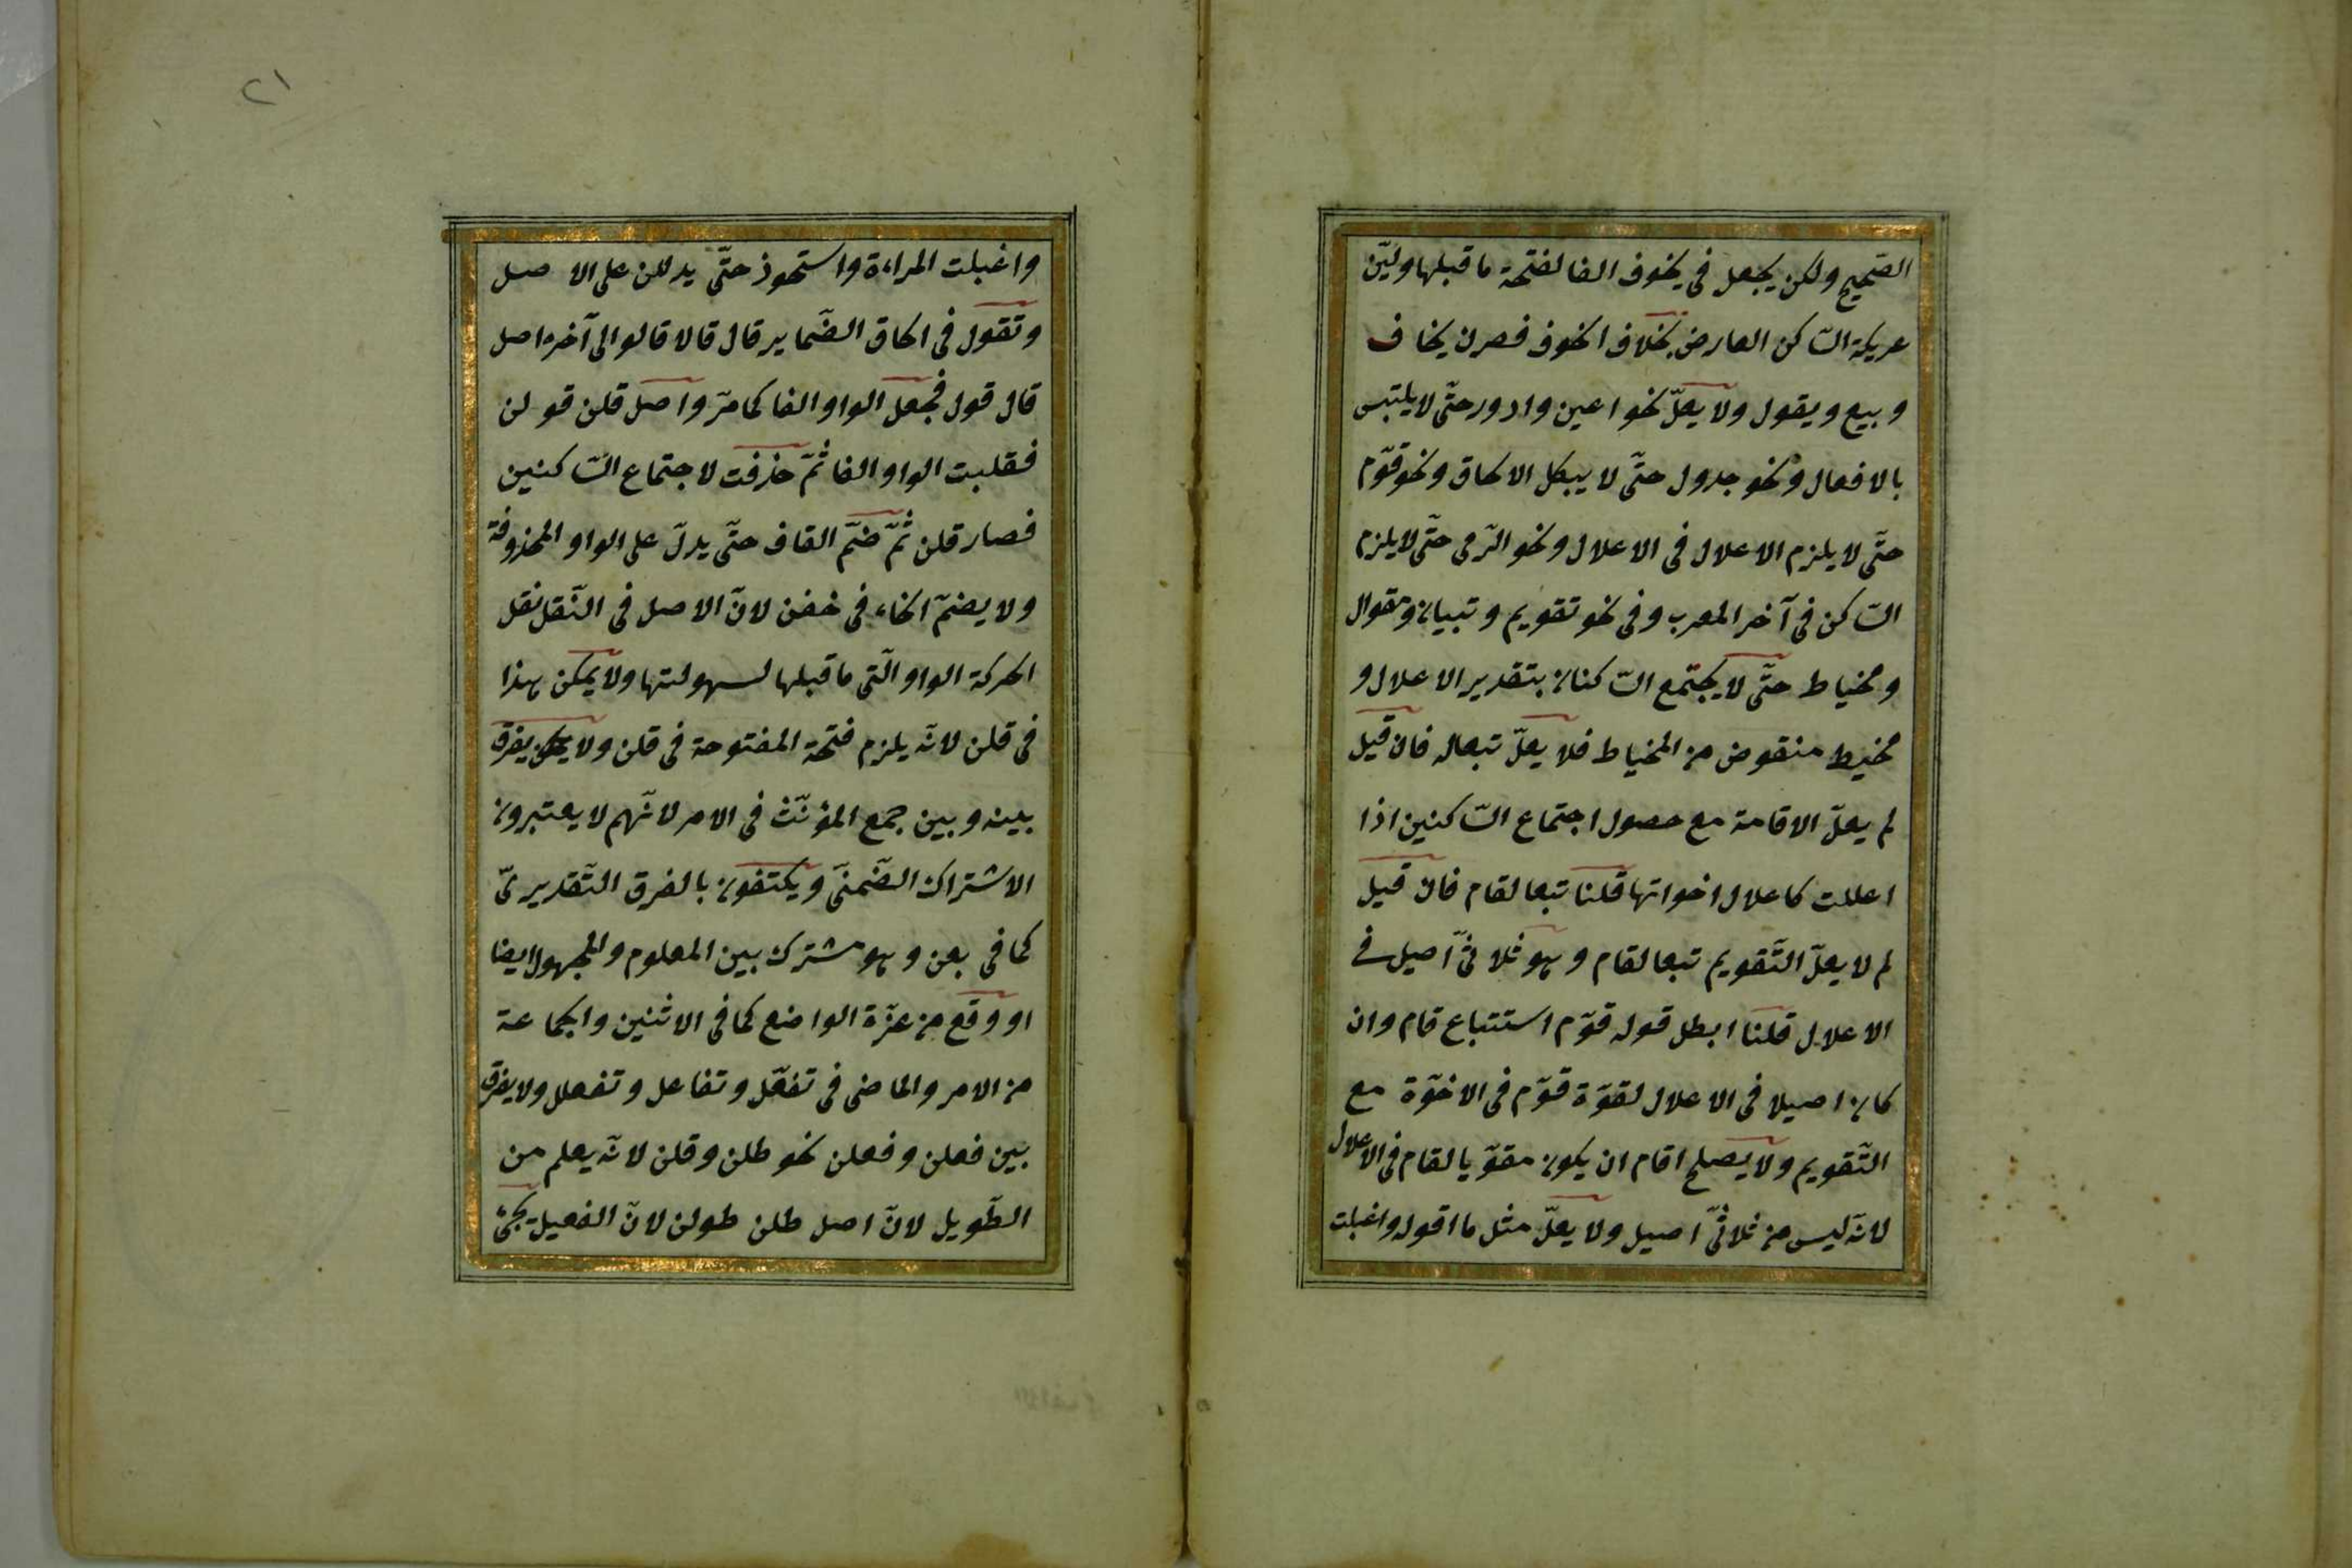 الصّحيح ولكن يجعل فى يخوف الفا لفتحة ما قبلها ولين
عريكة السّاكن العارض بخلاف الخوف فصرن يخاف
وبيع ويقول ولا يعلّ نحو اعين وادور حتّى لا يلتبس
بالافعال ونحو جدول حتّى لا يبطل الالحاق ونحو قوّم
حتّى لا يلزم الاعلال فى الاعلال ونحو الرّمى حتّى لا يلزم
السّاكن فى آخر المعرب وفى نحو تقويم وتبيان ومقوال
ومخياط حتّى لا يجتمع السّاكنان بتقدير الاعلال و
مخيط منقوص من المخياط فلا يعلّ تبعا له فان قيل
لم يعلّ الاقامة مع حصول اجتماع السّاكنين اذا
اعللت كاعلال اخواتها قلنا تبعا لقام فان قيل
لم لا يعلّ التّقويم تبعا لقام وهو ثلاثىّ اصيل فى
الاعلال قلنا ابطل قوله قوّم استتباع قام وان
كان اصيلا فى الاعلال لقوّة قوّم فى الاخوّة مع
التّقويم ولا يصلح اقام ان يكون مقوّيا لقام فى الاعلال
لانّه ليس من ثلاثىّ اصيل ولا يعلّ مثل ما اقوله واغبلت
٢١
واغبلت المراءة واستحوذ حتّى يدللن على الاصل
وتقول فى الحاق الضّماير قال قالا قالوا الى آخره اصل
قال قول فجعل الواو الفا كما مرّ واصل قلن قولن
فقلبت الواو الفا ثمّ حذفت لاجتماع السّاكنين
فصار قلن ثمّ ضمّ القاف حتّى يدلّ على الواو المحذوفة
ولا يضمّ الخاء فى خفن لانّ الاصل فى النّقل نقل
الحركة الواو الّتى ما قبلها لسهولتها ولا يمكن هذا
فى قلن لانّه يلزم فتحة المفتوحة فى قلن ولا يفرق
بينه وبين جمع المؤنّث فى الامر لانّهم لا يعتبرون
الاشتراك الضّمنىّ ويكتفون بالفرق التّقديرىّ
كما فى بعن وهو مشترك بين المعلوم والمجهول ايضا
او وقع من عزّة الواضع كما فى الاثنين والجماعة
من الامر والماضى فى تفعّل وتفاعل وتفعلل ولا يفرق
بين فعلن وفعلن نحو طلن وقلن لانّه يعلم من
الطّويل لانّ اصل طلن طولن لانّ الفعيل يجئ